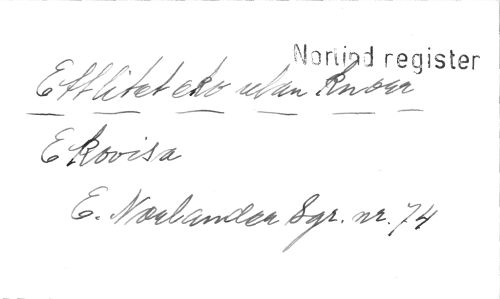 Nortind register
Ett litet eko utan knorr
Ekovisa
E. Norlander Sgr. nr. 74